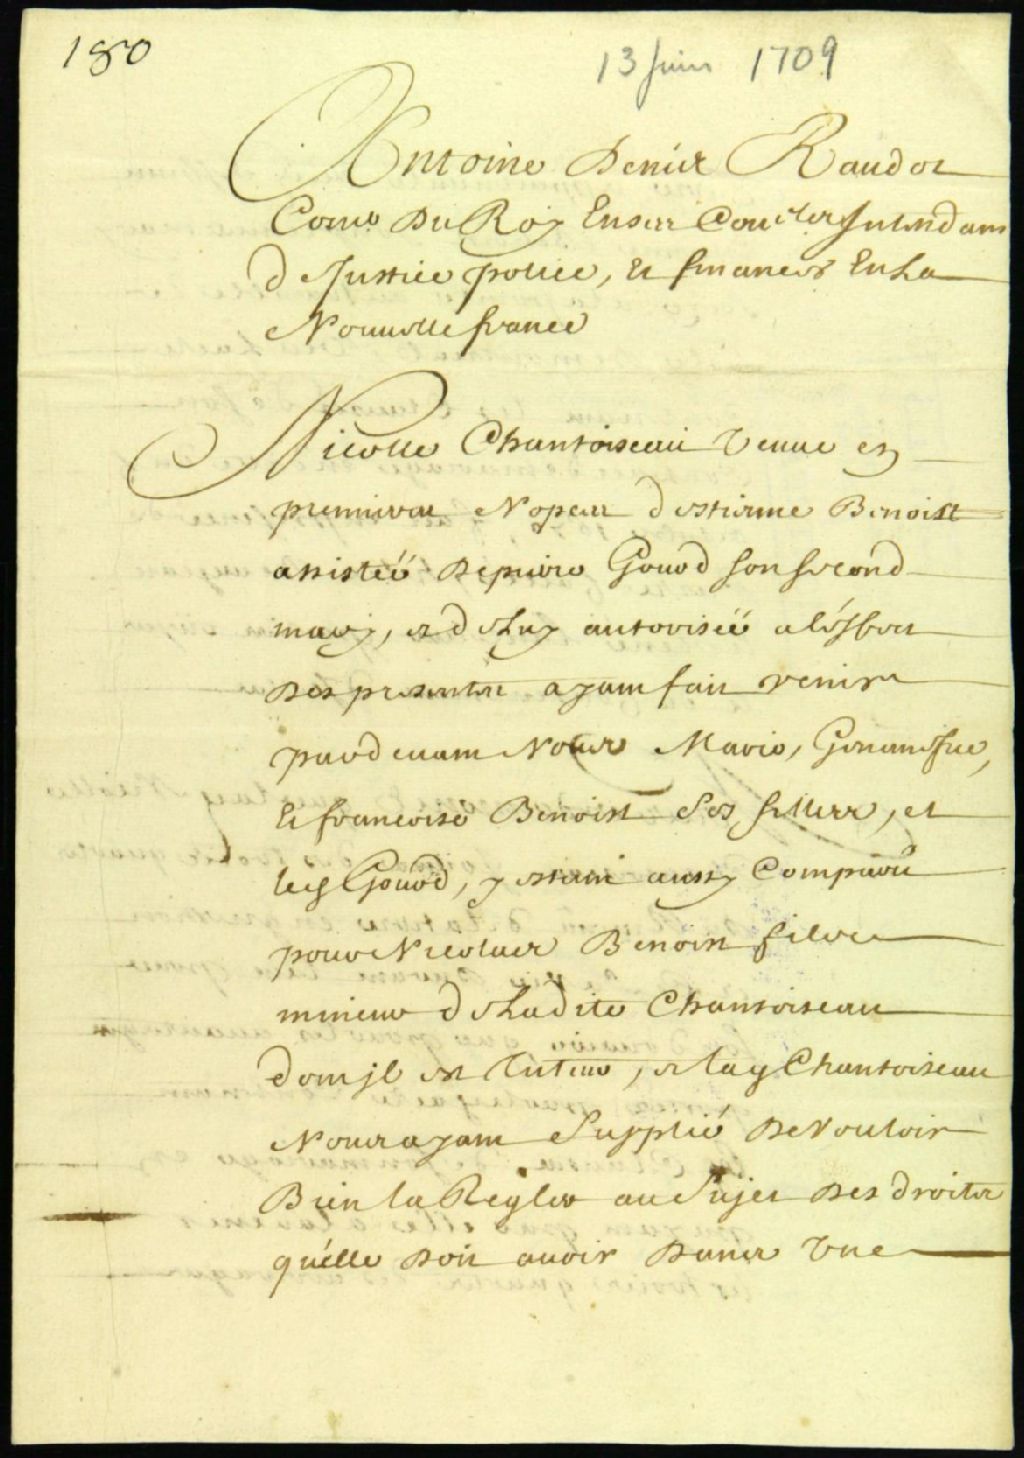 180
13 Juin 1709
Antoine Denis Raudot
Con.er Du Roy En ses Con.ls Intendant
de Justice police, Et finances En La
Nouvelle france
Nicolle Chantoiseau veuve en
premieres Nopces d'Estienne Benoist
assistée De pierre Gouod son second
mary, et de Luy autorisée a l'Esfect
Des presentes ayant fait venir
pardevant Nous Marie, Genevifve,
Et francoise Benoist Ses filles, et
led Gouod, y estant aussy Comparu
pour Nicolas Benoist fils
mineur de Ladite Chantoiseau
dont jl est tuteur, et lad Chantoiseau
Nous ayant Supplié De Vouloir
Bien la Regler au Sujet Des droits
qu'elle Doit avoir Dans Une